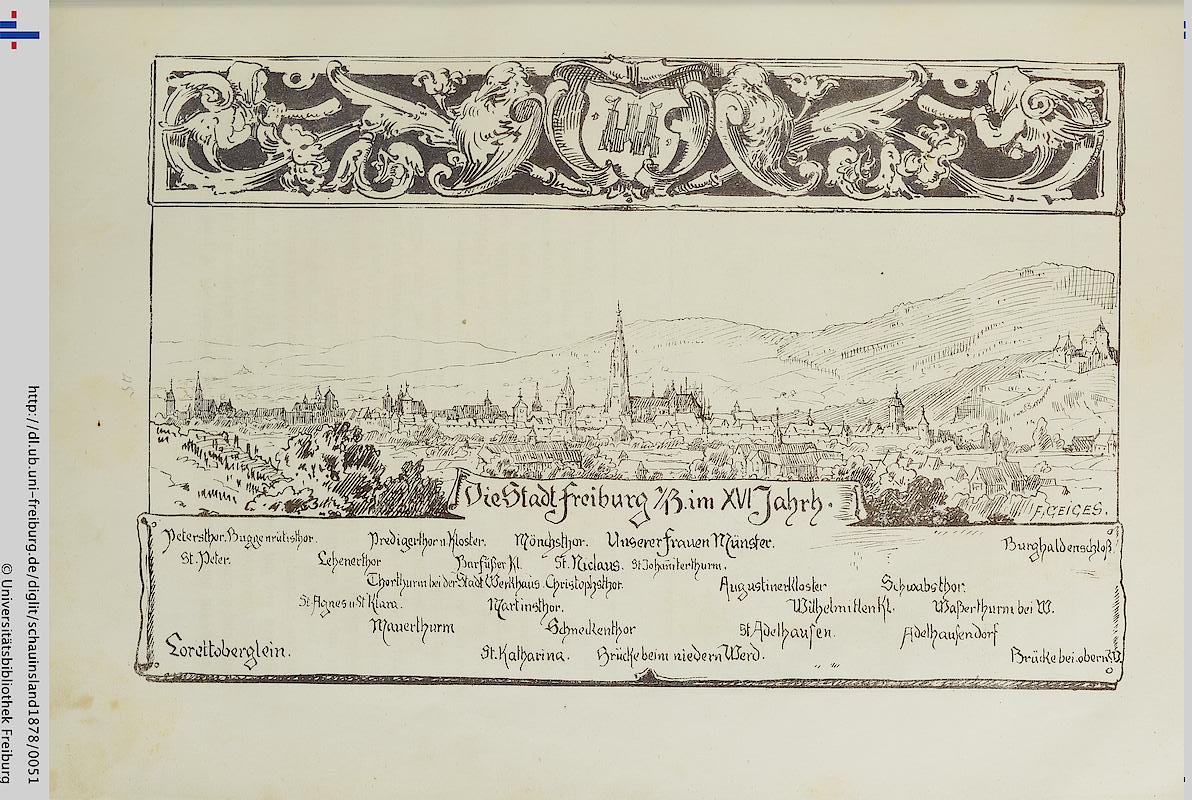 Die Stadt Freiburg i/B. im XVI Jahrh.
F. GEIGES.
Petersthor. Buggenrütisthor. Predigerthor u. Kloster. Mönchsthor. Unserer Frauen Münster. Burghaldenschloß.
St. Peter. Lehenerthor Barfüßer Kl. St. Niclaus. St Johanniterthurm.
Thorthurm bei der Stadt Werkhaus. Christophsthor. Augustinerkloster Schwabsthor.
St. Agnes u. St Klara. Martinsthor. Wilhelmitten Kl. Waßerthurm bei W.
Mauerthurm Schneckenthor St Adelhausen. Adelhausendorf
Lorettoberglein. St. Katharina. Brücke beim niedern Werd. Brücke bei obern W.
http://dl.ub.uni-freiburg.de/diglit/schauinsland1878/0051
© Universitätsbibliothek Freiburg